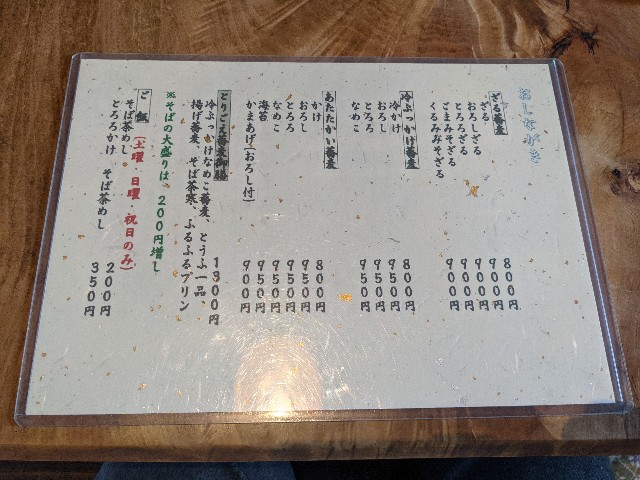 おしながき
ざる蕎麦
ざる 800円
おろしざる 900円
とろろざる 900円
ごまみそざる 900円
くるみみそざる 900円
冷ぶっかけ蕎麦
冷かけ 800円
おろし 950円
とろろ 950円
なめこ 950円
あたたかい蕎麦
かけ 800円
おろし 950円
とろろ 950円
なめこ 950円
海苔 950円
かまあげ(おろし付) 900円
とりごえ蕎麦御膳 1300円
冷ぶっかけなめこ蕎麦、とうふ一品、
揚げ蕎麦、そば茶寒、ふるふるプリン
※そばの大盛りは 200円増し
ご飯 (土曜・日曜 祝日のみ)
そば茶めし 200円
とろろかけ そば茶めし 350円